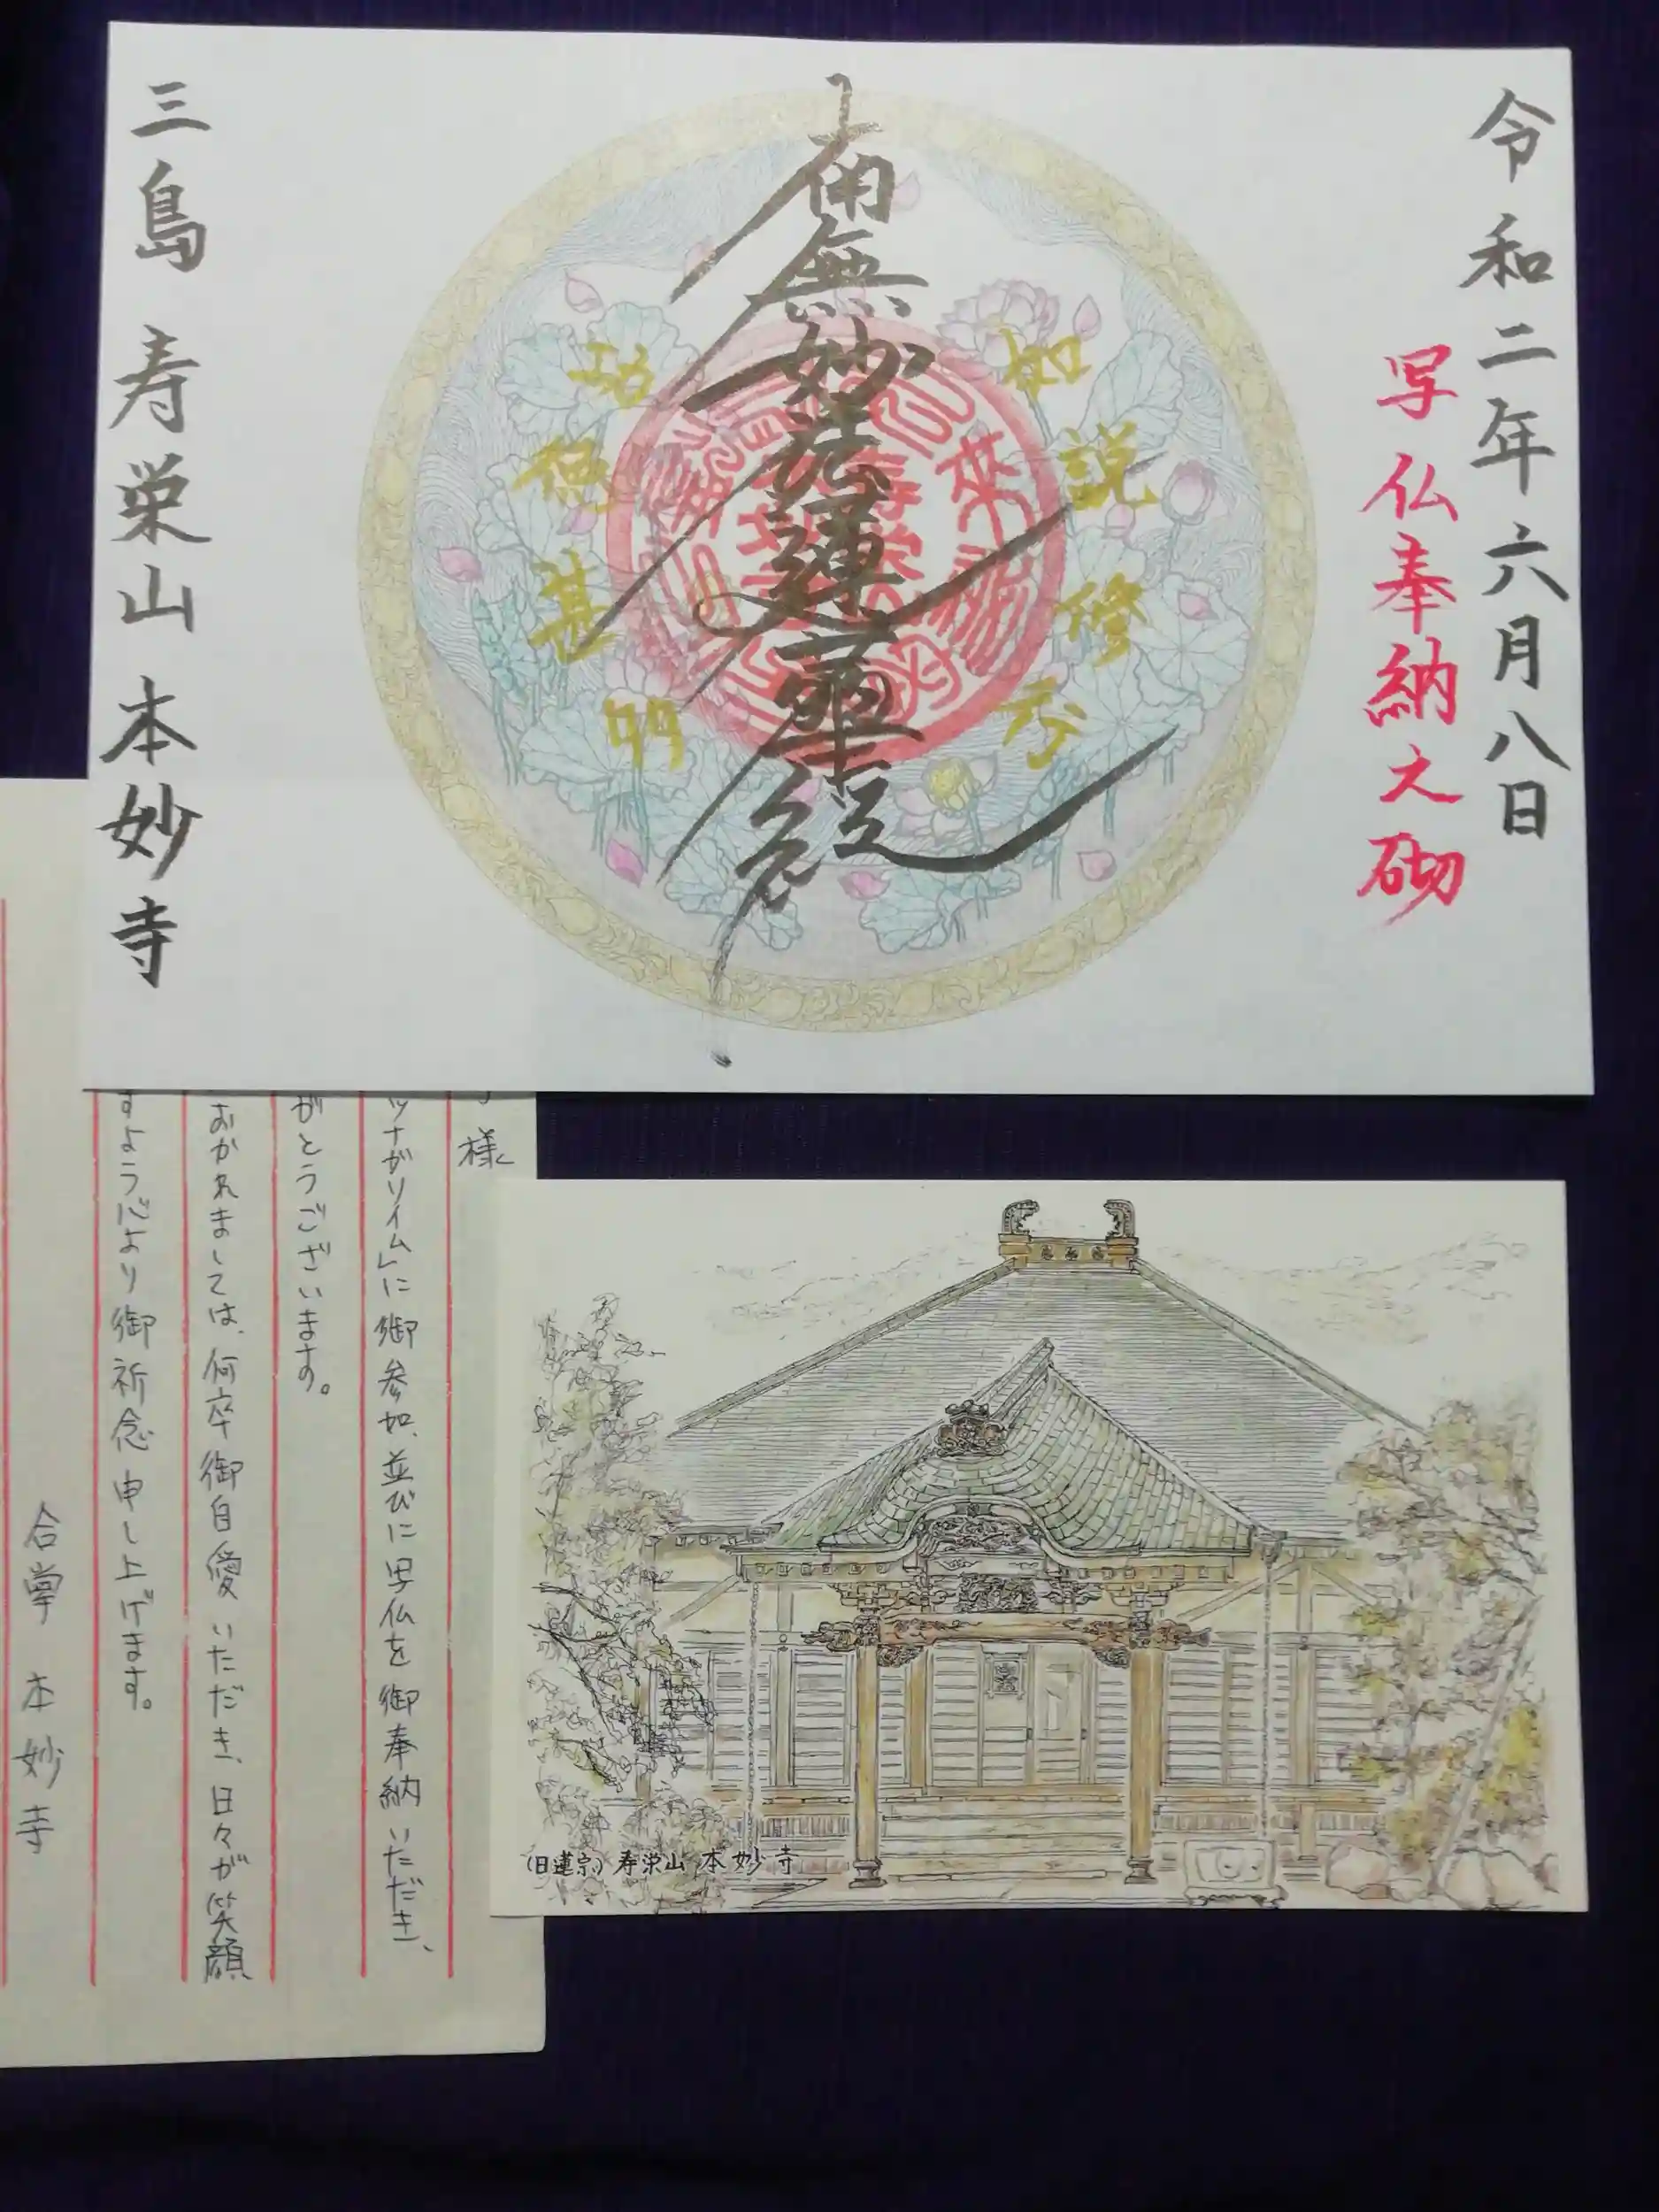 令和二年六月八日
写仏奉納之砌
如説修行
南無妙法蓮華経
功徳甚多
三島 寿栄山 本妙寺
様
ツナガリイム」に御参加、並びに写仏を御奉納いただき、
がとうございます。
おかれましては、何卒御自愛いただき、日々が笑顔
すよう心より御祈念申し上げます。
合掌 本妙寺
(日蓮宗) 寿栄山 本妙寺